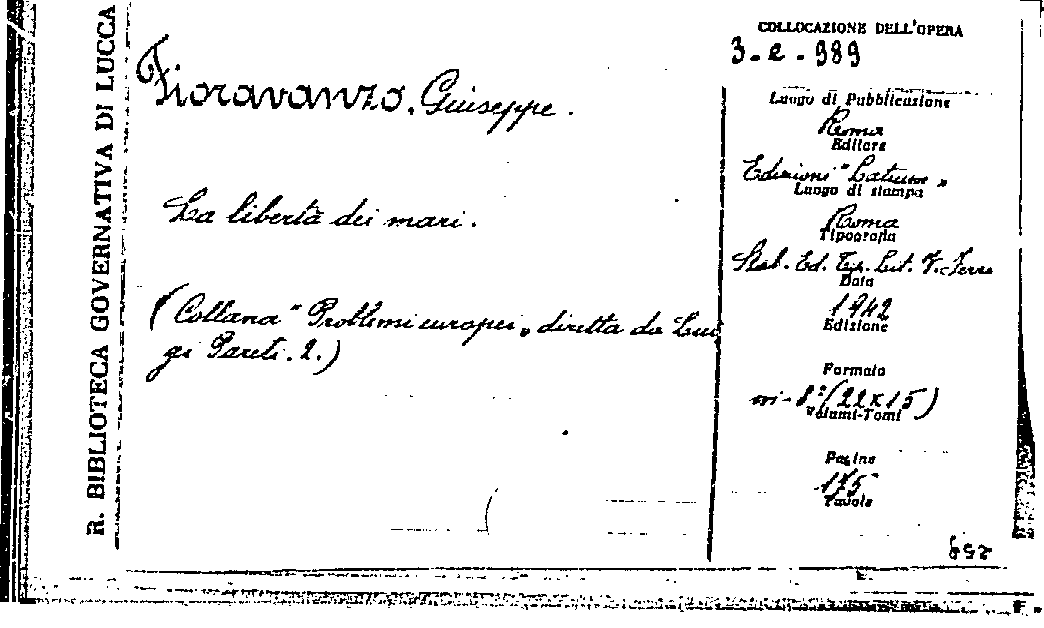 R. BIBLIOTECA GOVERNATIVA DI LUCCA
Fioravanzo, Giuseppe.
La libertà dei mari.
(Collana "Problemi europei" diretta da Lui
gi Pareti. 2.)
COLLOCAZIONE DELL'OPERA
3-e-989
Luogo di Pubblicazione
Roma
Editore
Edizioni "Latium"
Luogo di stampa
Roma
Tipografia
Stab. Ed. Tip. Lit. V. Ferri
Data
1942
Edizione
Formato
in-8°(22x15)
Volumi-Tomi
Pagine
175
Tavole